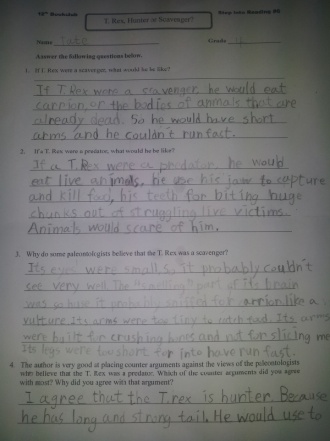 T. Rex, Hunter or Scavenger?
Name Tate Grade 4
Answer the following questions below.
1. If T. Rex were a scavenger, what would he be like?
If T. Rex were a scavenger, he would eat
carrion, or the bodies of animals that are
already dead. So he would have short
arms and he couldn't run fast.
2. If a T. Rex were a predator, what would he be like?
If a T. Rex were a predator, he would
eat live animals, he use his jaw to capture
and kill food, his teeth for biting huge
chunks out of struggling live victims.
Animals would scare of him.
3. Why do some paleontologists believe that the T. Rex was a scavenger?
Its eyes were small, so it probably couldn't
see very well. The "smelling" part of its brain
was so it probably sniffed for carrion like a
vulture. Its arms were too tiny to catch Its
were built for crushing and not for slicing
Its legs were too short for to have run fast.
4. The author is very good at placing counter arguments against the views of the paleontologists
who believe that the T. Rex was a predator. Which of the counter arguments did you agree
with most? Why did you agree with that argument?
I agree that the T. rex is hunter. Because
he has long and strong tail. He would use to